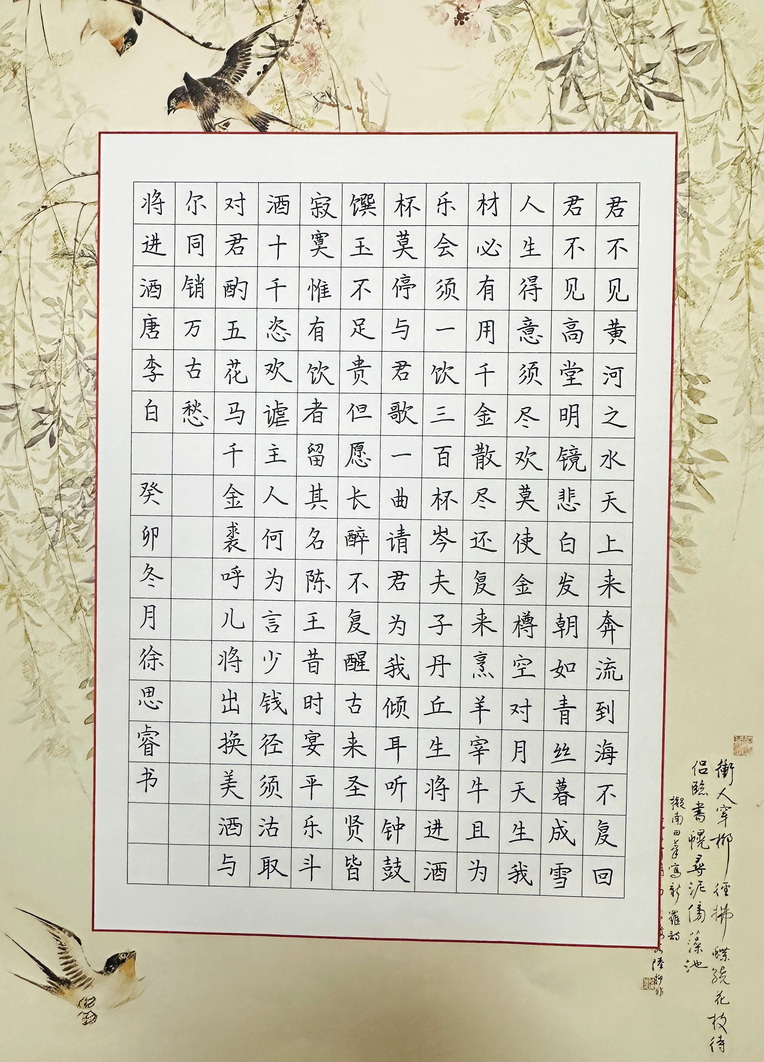 君不见黄河之水天上来奔流到海不复回
君不见高堂明镜悲白发朝如青丝暮成雪
人生得意须尽欢莫使金樽空对月天生我
材必有用千金散尽还复来烹羊宰牛且为
乐会须一饮三百杯岑夫子丹丘生将进酒
杯莫停与君歌一曲请君为我倾耳听钟鼓
馔玉不足贵但愿长醉不复醒古来圣贤皆
寂寞惟有饮者留其名陈王昔时宴平乐斗
酒十千恣欢谑主人何为言少钱径须沽取
对君酌五花马千金裘呼儿将出换美酒与
尔同销万古愁
将进酒唐李白 癸卯冬月徐思睿书
衝人穿柳徑拂蝶繞花枝待
侣臨書幌尋泥傍藻池
擬南田筆寫新羅詩